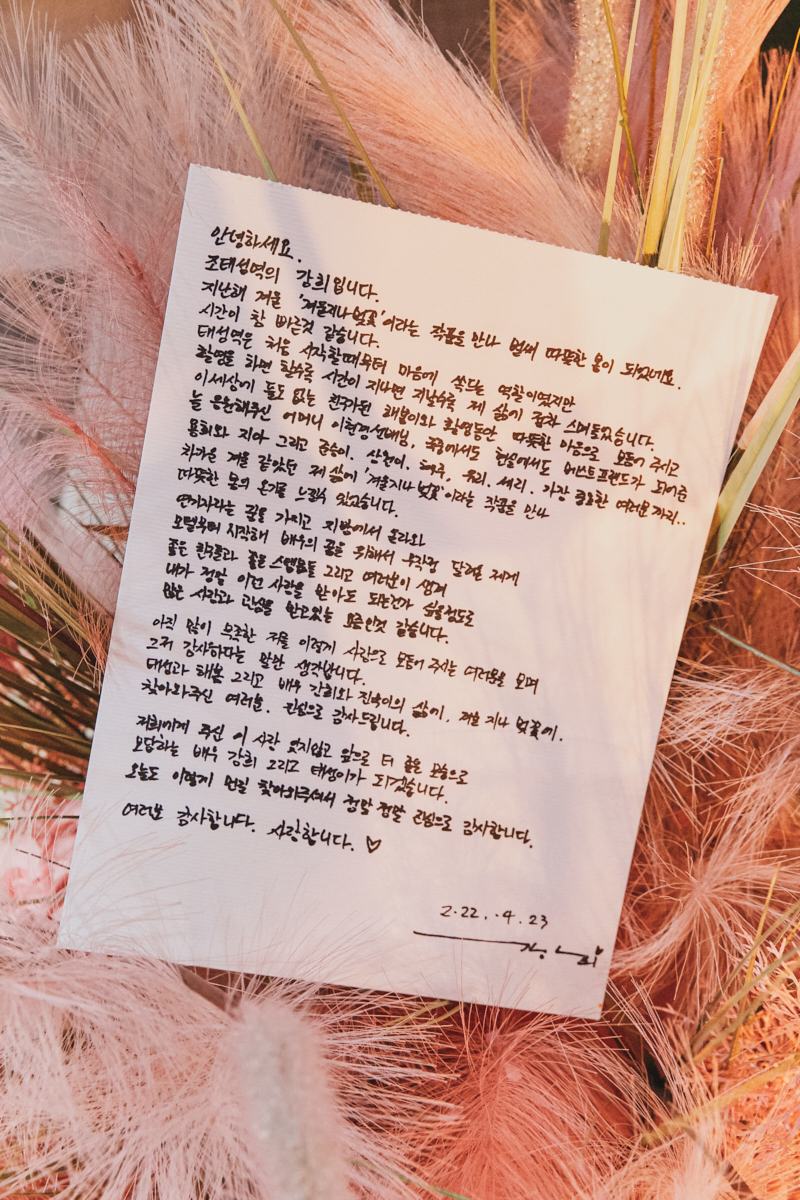 안녕하세요.
조태성역의 강희입니다.
지난해 겨울 '겨울지나벚꽃'이라는 작품을 만나 벌써 따뜻한 봄이 되었네요.
시간이 참 빠른것 같습니다.
태성역은 처음 시작할때부터 마음에 쏙드는 역할이었지만
촬영을 하면 할수록 시간이 지나면 지날수록 제 삶에 점차 스며들었습니다.
이세상에 둘도 없는 친구가된 해봄이와 촬영동안 따뜻한 마음으로 보듬어 주시고
늘 응원해주신 어머니 이현경선배님, 극중에서도 현실에서도 베스트프렌드가 되어준
용희와 지아 그리고 금승이, 상현이, 해주, 유리, 세리, 가장 중요한 여러분까지..
차가운 겨울 같았던 제 삶에 '겨울지나벚꽃'이라는 작품을 만나
따뜻한 봄의 온기를 느낄수 있었습니다.
연기자라는 꿈을 가지고 지방에서 올라와
모텔부터 시작해 배우의 꿈을 위해서 무작정 달려온 제게
좋은 친구들과 좋은 스탭분들 그리고 여러분이 생겨
내가 정말 이런 사랑을 받아도 되는건가 싶을정도로
많은 사랑과 관심을 받고있는 요즘인것 같습니다.
아직 많이 부족한 저를 이렇게 사랑으로 보듬어 주시는 여러분을 보며
그저 감사하다는 말만 생각납니다.
태성과 해봄 그리고 배우 강희와 진욱이의 삶에, 겨울 지나 벚꽃에,
찾아와주신 여러분, 진심으로 감사드립니다.
저희에게 주신 이 사랑 잊지않고 앞으로 더 좋은 모습으로
보답하는 배우 강희 그리고 태성이가 되겠습니다.
오늘도 이렇게 먼길 찾아와주셔서 정말 정말 진심으로 감사합니다.
여러분 감사합니다. 사랑합니다. ♡
2.22..4.23
강희